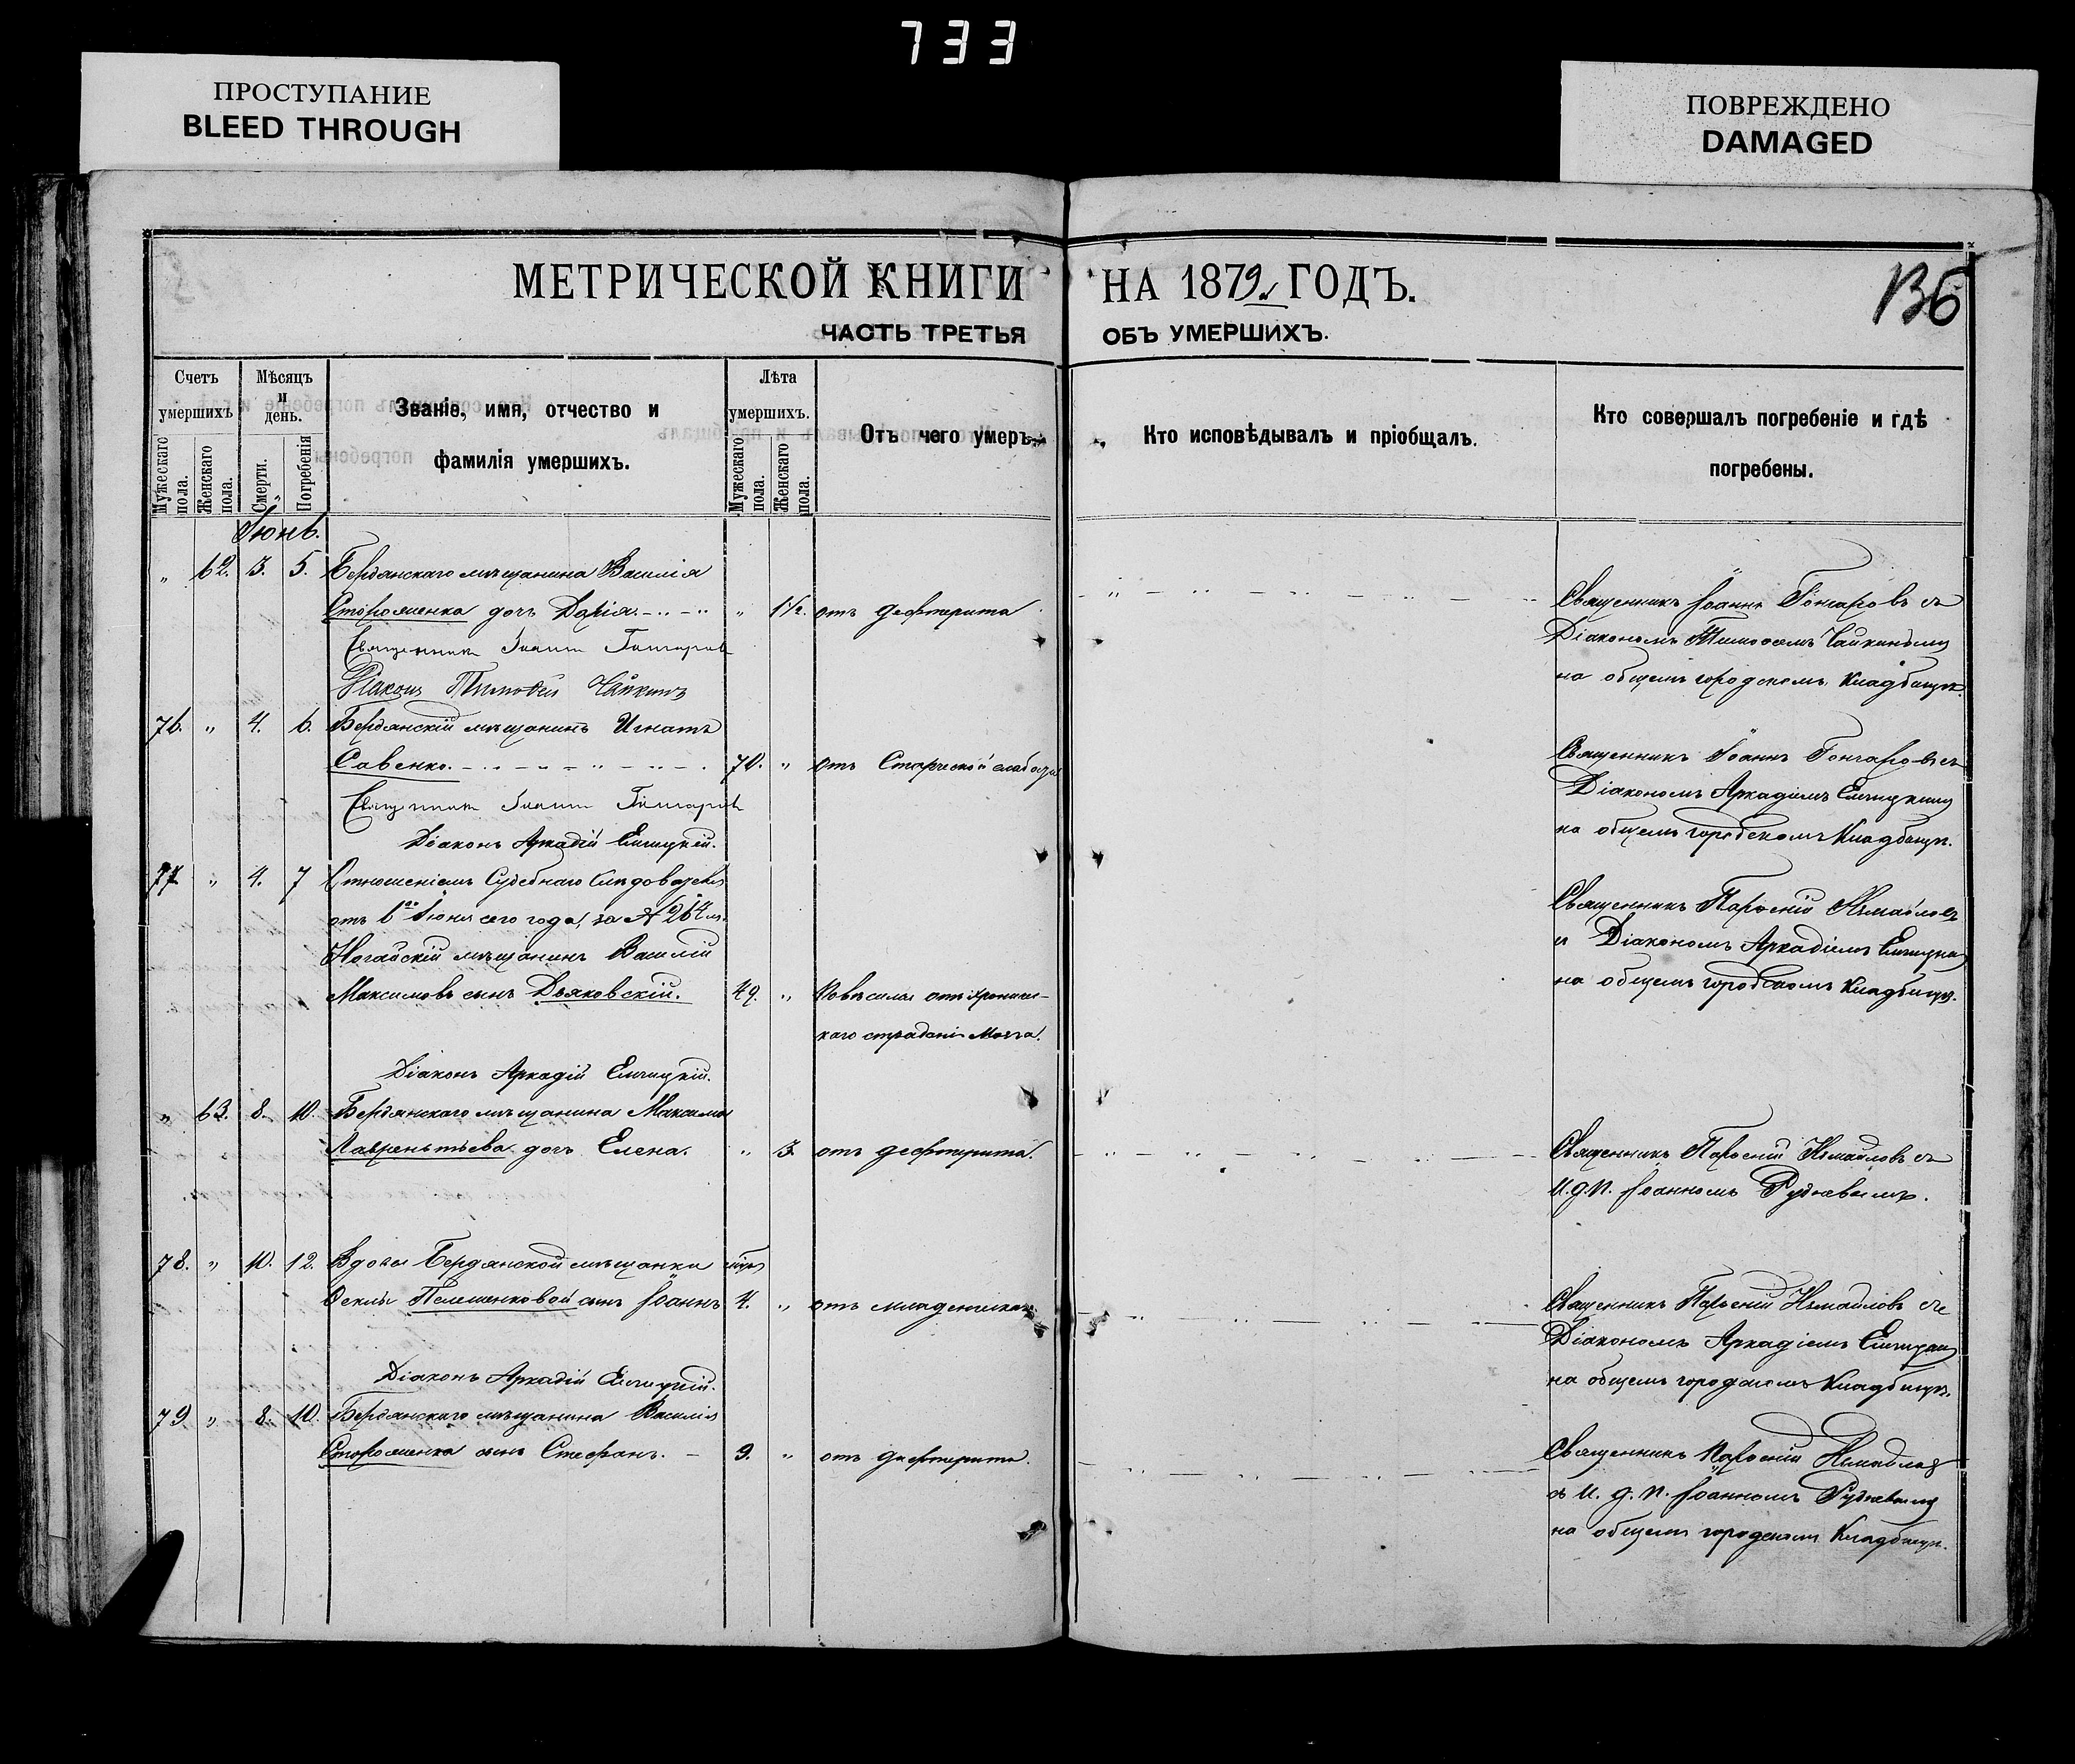 733
ПРОСТУПАНИЕ
BLEED THROUGH
ПОВРЕЖДЕНО
DAMAGED
МЕТРИЧЕСКОЙ КНИГИ НА 1879 ГОДЪ.
136
ЧАСТЬ ТРЕТЬЯ ОБЪ УМЕРШИХЪ.
Счетъ умершихъ
Мужескаго пола.
Женскаго пола.
Мѣсяцъ и день.
Смерти.
Погребенія
Званіе, имя, отчество и фамилія умершихъ.
Лѣта умершихъ.
Мужескаго пола.
Женскаго пола.
Отъ чего умеръ.
Кто исповѣдывалъ и пріобщалъ.
Кто совершалъ погребеніе и гдѣ погребены.
Іюнь.
„ 62. 3. 5. Бердянскаго мѣщанина Василія
дочь Дарія „ 1½. отъ дефтерита
Священникъ Іоаннъ Гончаровъ
Діаконъ Тимоѳей Чайкинъ
Священникъ Іоаннъ Гончаровъ съ
Діакономъ Тимоѳеемъ Чайкинымъ
на общемъ городскомъ кладбищѣ.
76. „ 4. 6. Бердянскій мѣщанинъ Игнатъ
Савенко. 70. „ отъ Старческой слабости
Священникъ Іоаннъ Гончаровъ
Діаконъ Аркадій
Священникъ Іоаннъ Гончаровъ съ
Діакономъ Аркадіемъ
на общемъ городскомъ кладбищѣ.
77 „ 4. 7 Отношеніемъ Судебнаго Слѣдователя
отъ 6го Іюня сего года за № 264
Ногайскій мѣщанинъ Василій
Максимовъ сынъ Дьяковскій. 49. „ отъ хрониче-
каго страданія мозга.
Діаконъ Аркадій
Священникъ Парѳеній Измайловъ
и Діакономъ Аркадіемъ
на общемъ городскомъ кладбищѣ.
„ 63. 8. 10. Бердянскаго мѣщанина Максима
Лаврентьева дочь Елена. „ 3. отъ дефтерита.
Священникъ Парѳеній Измайловъ съ
И. д. п. Іоанномъ
78. „ 10. 12. Вдовы Бердянской мѣщанки
Ѳеклы сынъ Іоаннъ 4. „ отъ младенческой
Діаконъ Аркадій
Священникъ Парѳеній Измайловъ съ
Діакономъ Аркадіемъ
на общемъ городскомъ кладбищѣ.
79 „ 8. 10. Бердянскаго мѣщанина Василія
сынъ Стефанъ. 9. „ отъ дефтерита.
Священникъ Парѳеній Измайловъ
съ И. д. п. Іоанномъ
на общемъ городскомъ кладбищѣ.